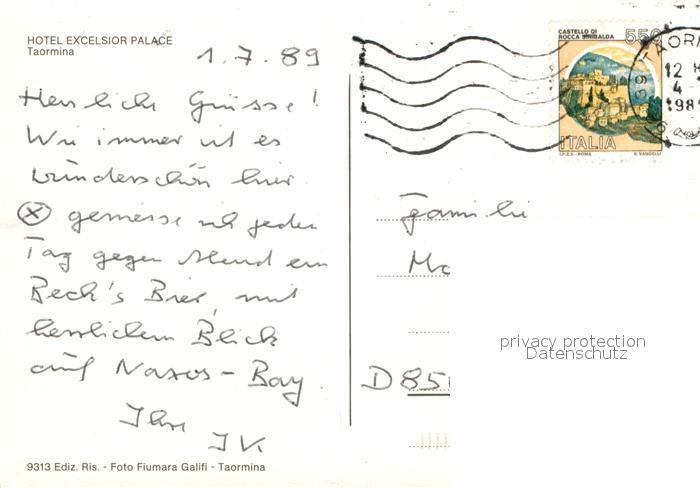 HOTEL EXCELSIOR PALACE
Taormina
1.7.89
Herzliche Grüsse!
Wie immer ist es
wunderschön hier.
Ⓧ geniesse ich jeden
Tag gegen Abend ein
Beck's Bier, mit
herrlichem Blick
auf Naxos-Bay.
Ihr
JK
9313 Ediz. Ris. - Foto Fiumara Galifi - Taormina
CASTELLO DI
ROCCA SINIBALDA
550
ITALIA
I.P.Z.S. - ROMA
TAORM
12
4
198
Familie
D 85
privacy protection
Datenschutz